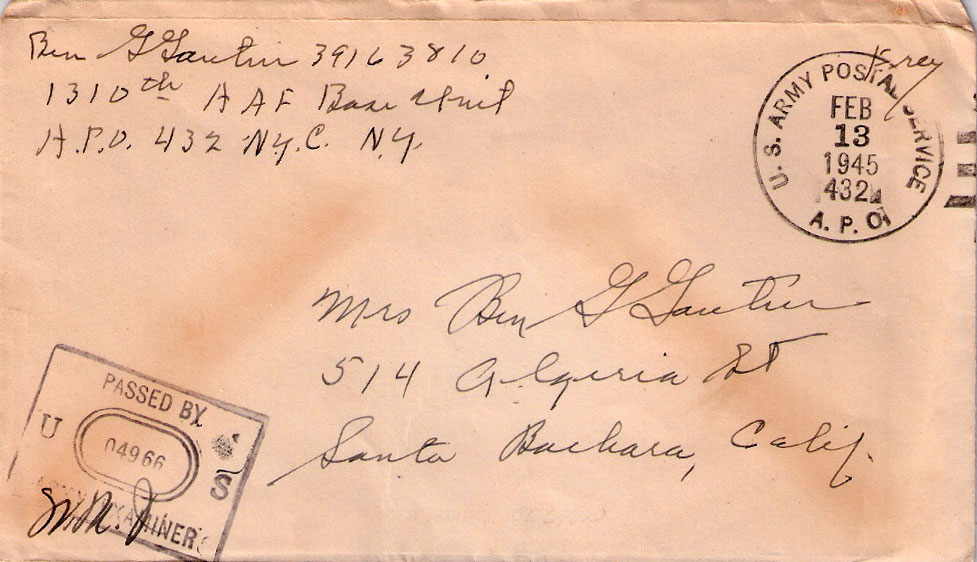 Ben G Gautier 39163810
1310th AAF Base Unit
A.P.O. 432 N.Y.C. N.Y.
Free
U. S. ARMY POSTAL SERVICE
FEB
13
1945
432
A. P. O.
Mrs Ben G Gautier
514 Algeria St
Santa Barbara, Calif.
PASSED BY
U S
04966
ARMY EXAMINER